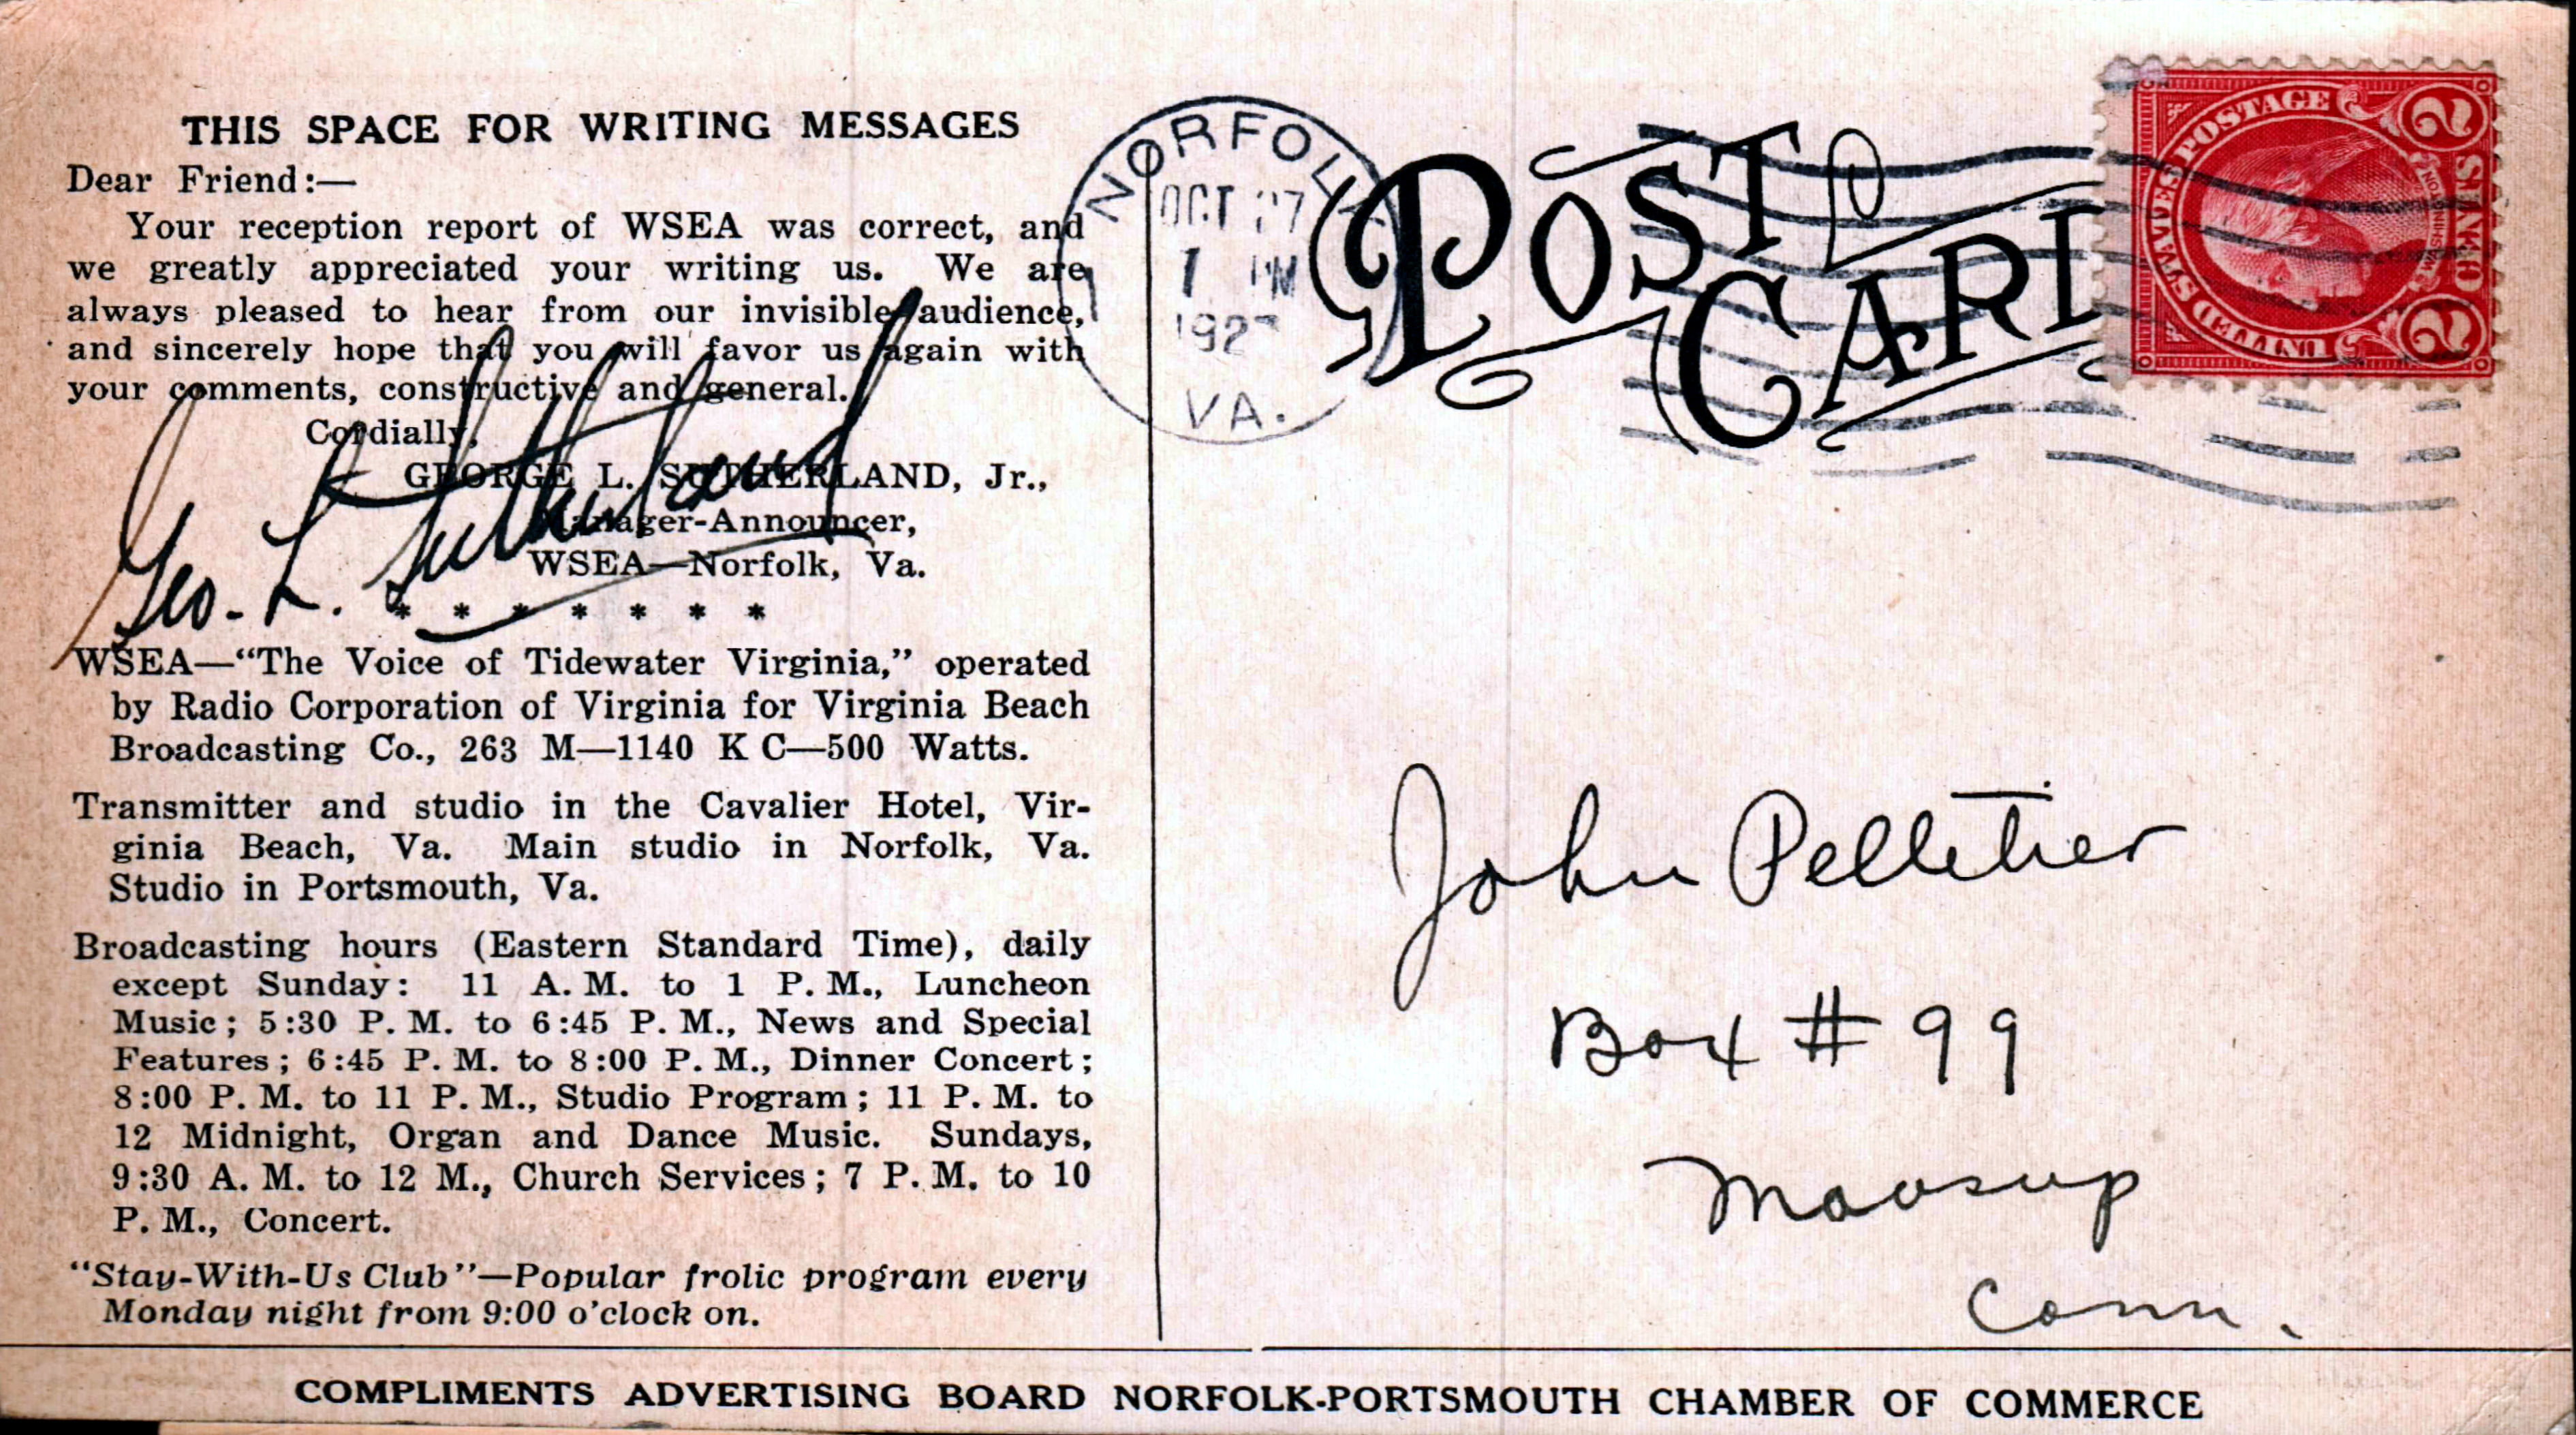 THIS SPACE FOR WRITING MESSAGES
Dear Friend:—
Your reception report of WSEA was correct, and
we greatly appreciated your writing us. We are
always pleased to hear from our invisible audience,
and sincerely hope that you will favor us again with
your comments, constructive and general.
Cordially,
GEORGE L. SUTHERLAND, Jr.,
Manager-Announcer,
WSEA—Norfolk, Va.
Geo. L. Sutherland
* * * * * * *
WSEA—"The Voice of Tidewater Virginia," operated
by Radio Corporation of Virginia for Virginia Beach
Broadcasting Co., 263 M—1140 K C—500 Watts.
Transmitter and studio in the Cavalier Hotel, Vir-
ginia Beach, Va. Main studio in Norfolk, Va.
Studio in Portsmouth, Va.
Broadcasting hours (Eastern Standard Time), daily
except Sunday: 11 A. M. to 1 P. M., Luncheon
Music; 5:30 P. M. to 6:45 P. M., News and Special
Features; 6:45 P. M. to 8:00 P. M., Dinner Concert;
8:00 P. M. to 11 P. M., Studio Program; 11 P. M. to
12 Midnight, Organ and Dance Music. Sundays,
9:30 A. M. to 12 M., Church Services; 7 P. M. to 10
P. M., Concert.
"Stay-With-Us Club"—Popular frolic program every
Monday night from 9:00 o'clock on.
NORFOLK
OCT
1 PM
VA.
POST
CARD
UNITED STATES POSTAGE
WASHINGTON
2 CENTS 2
John Pelletier
Box # 99
Moosup
Conn.
COMPLIMENTS ADVERTISING BOARD NORFOLK-PORTSMOUTH CHAMBER OF COMMERCE